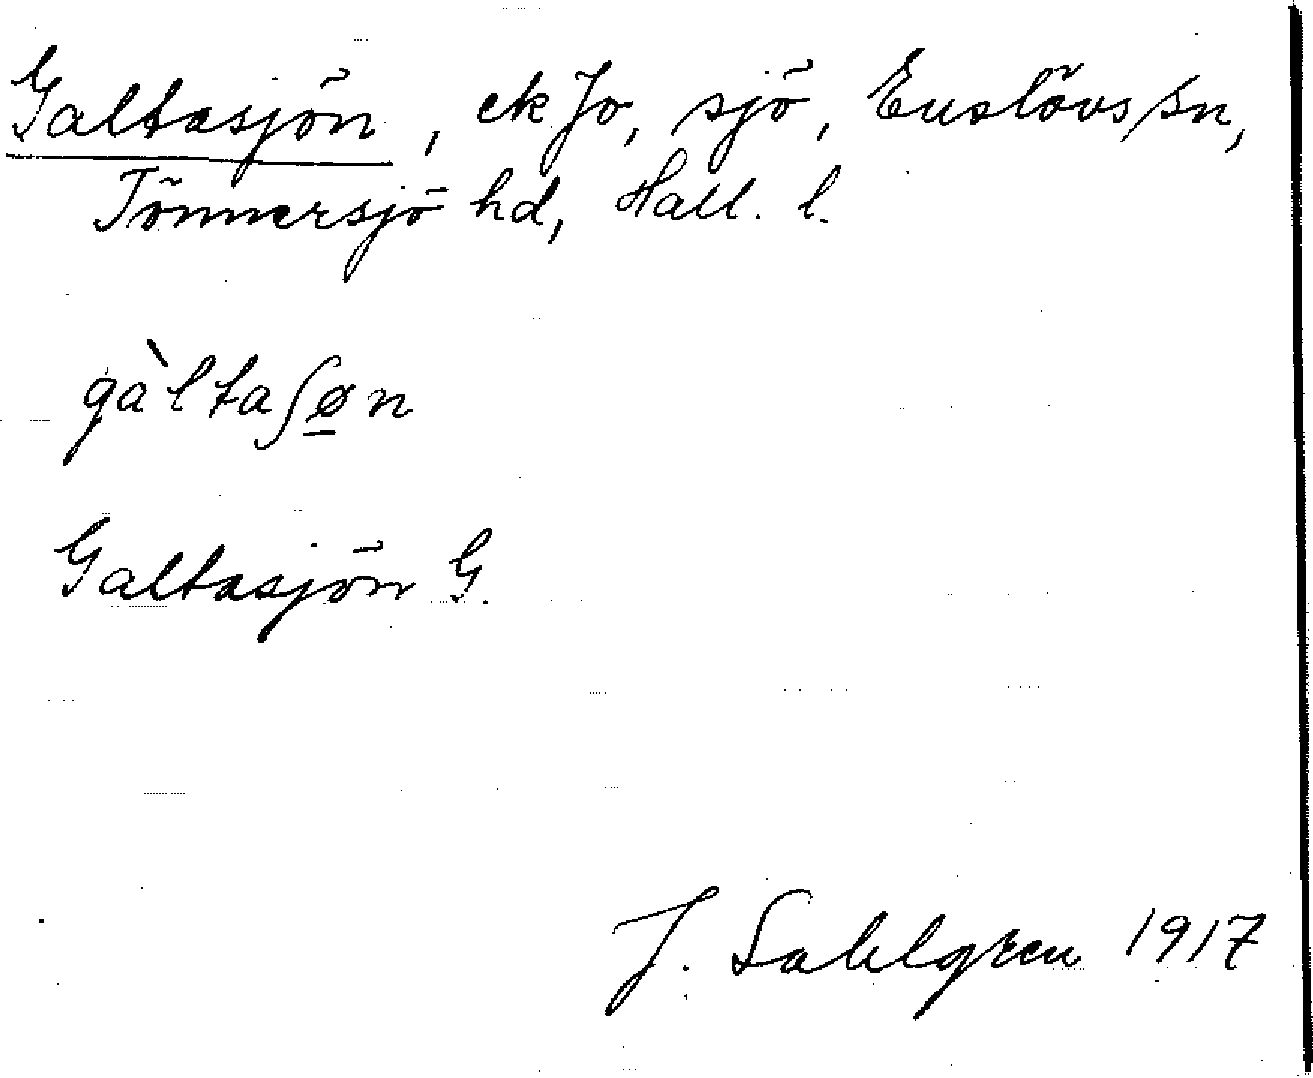 Galtasjön, ek Jo, sjö, Enslövs sn,
Tönnersjö hd, Hall. l.
gàltaʃø̲n
Galtasjön G.
J. Sahlgren 1917